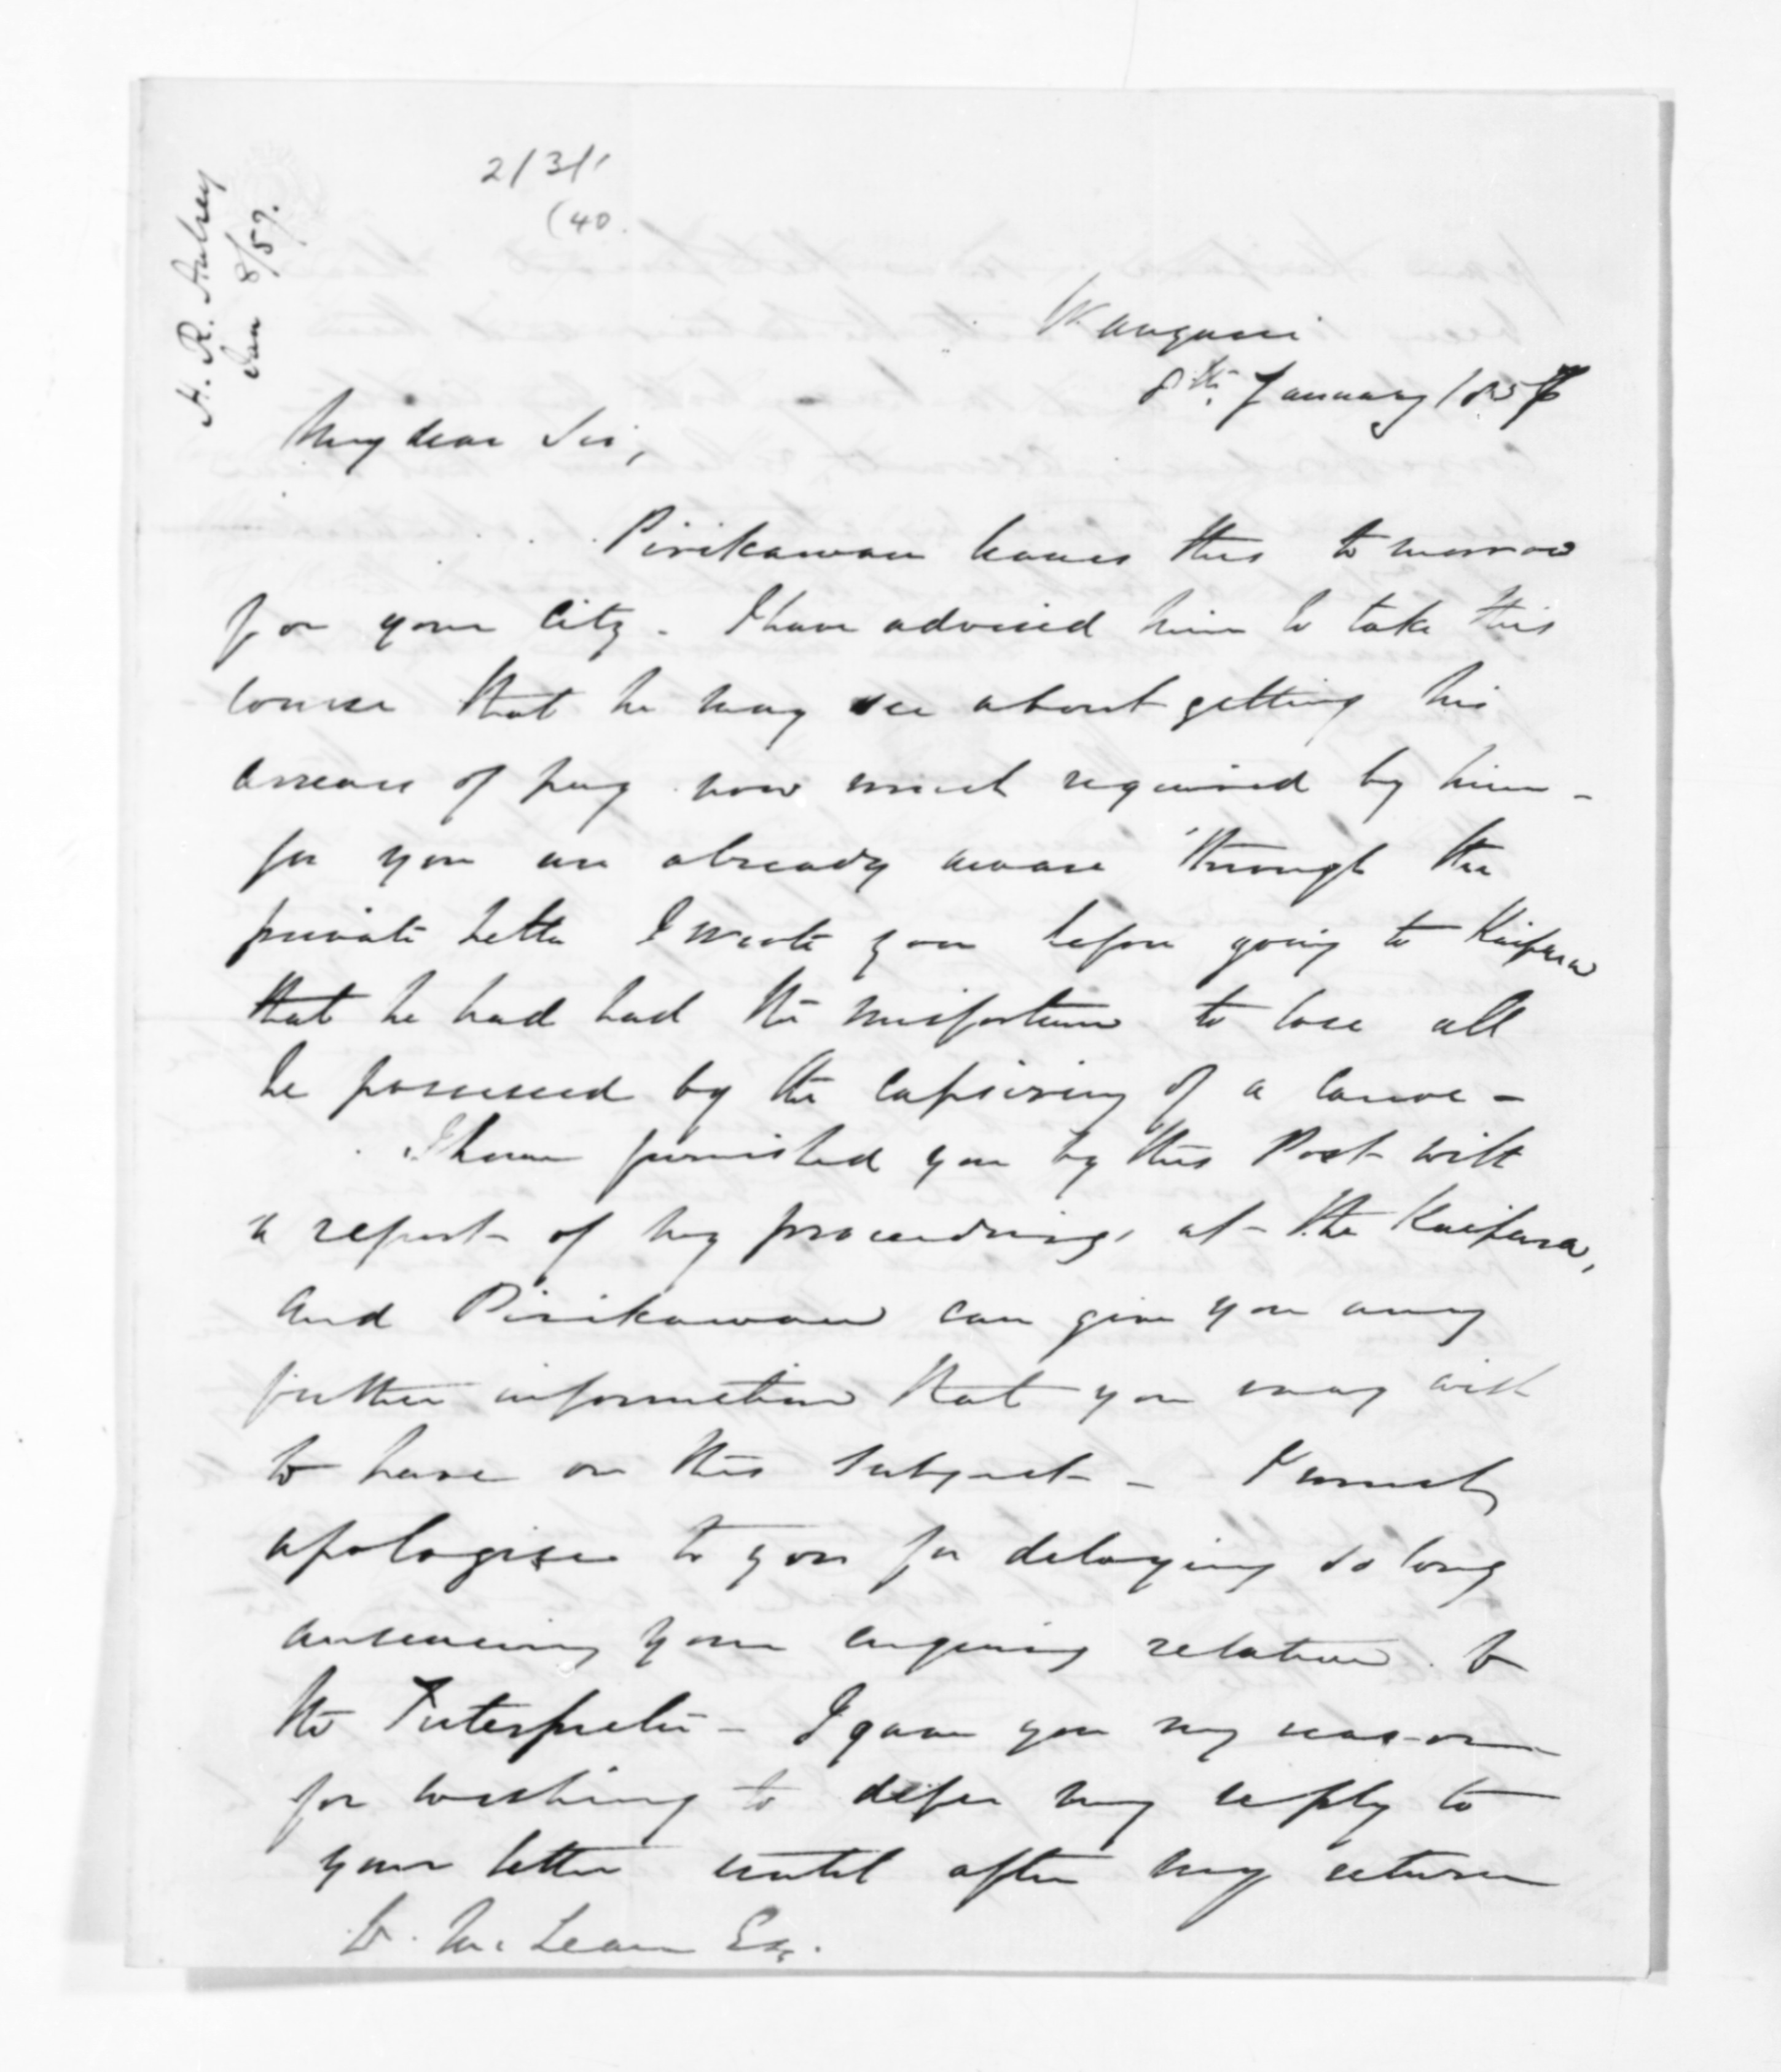 H. R. Aubrey
Jan 8/57.
2/3/1
(40.
Wangarei
8th. January 1857
My dear Sir,
Pirikawau leaves this tomorrow
for your City. I have advised him to take this
course that he may see about getting his
arrears of pay now much required by him -
for you are already aware through the
private letter I wrote you before going to Kaipara
that he had had the misfortune to lose all
he possessed by the capsizing of a Canoe -
I have furnished you by this Post with
a report of my proceedings at the Kaipara,
and Pirikawau can give you any
further information that you may wish
to have on this subject - I must
apologise to you for delaying so long
answering your enquiry relative to
the Interpreter - I gave you my reason
for wishing to defer my reply to
your letter until after my return
D. McLean Esq.